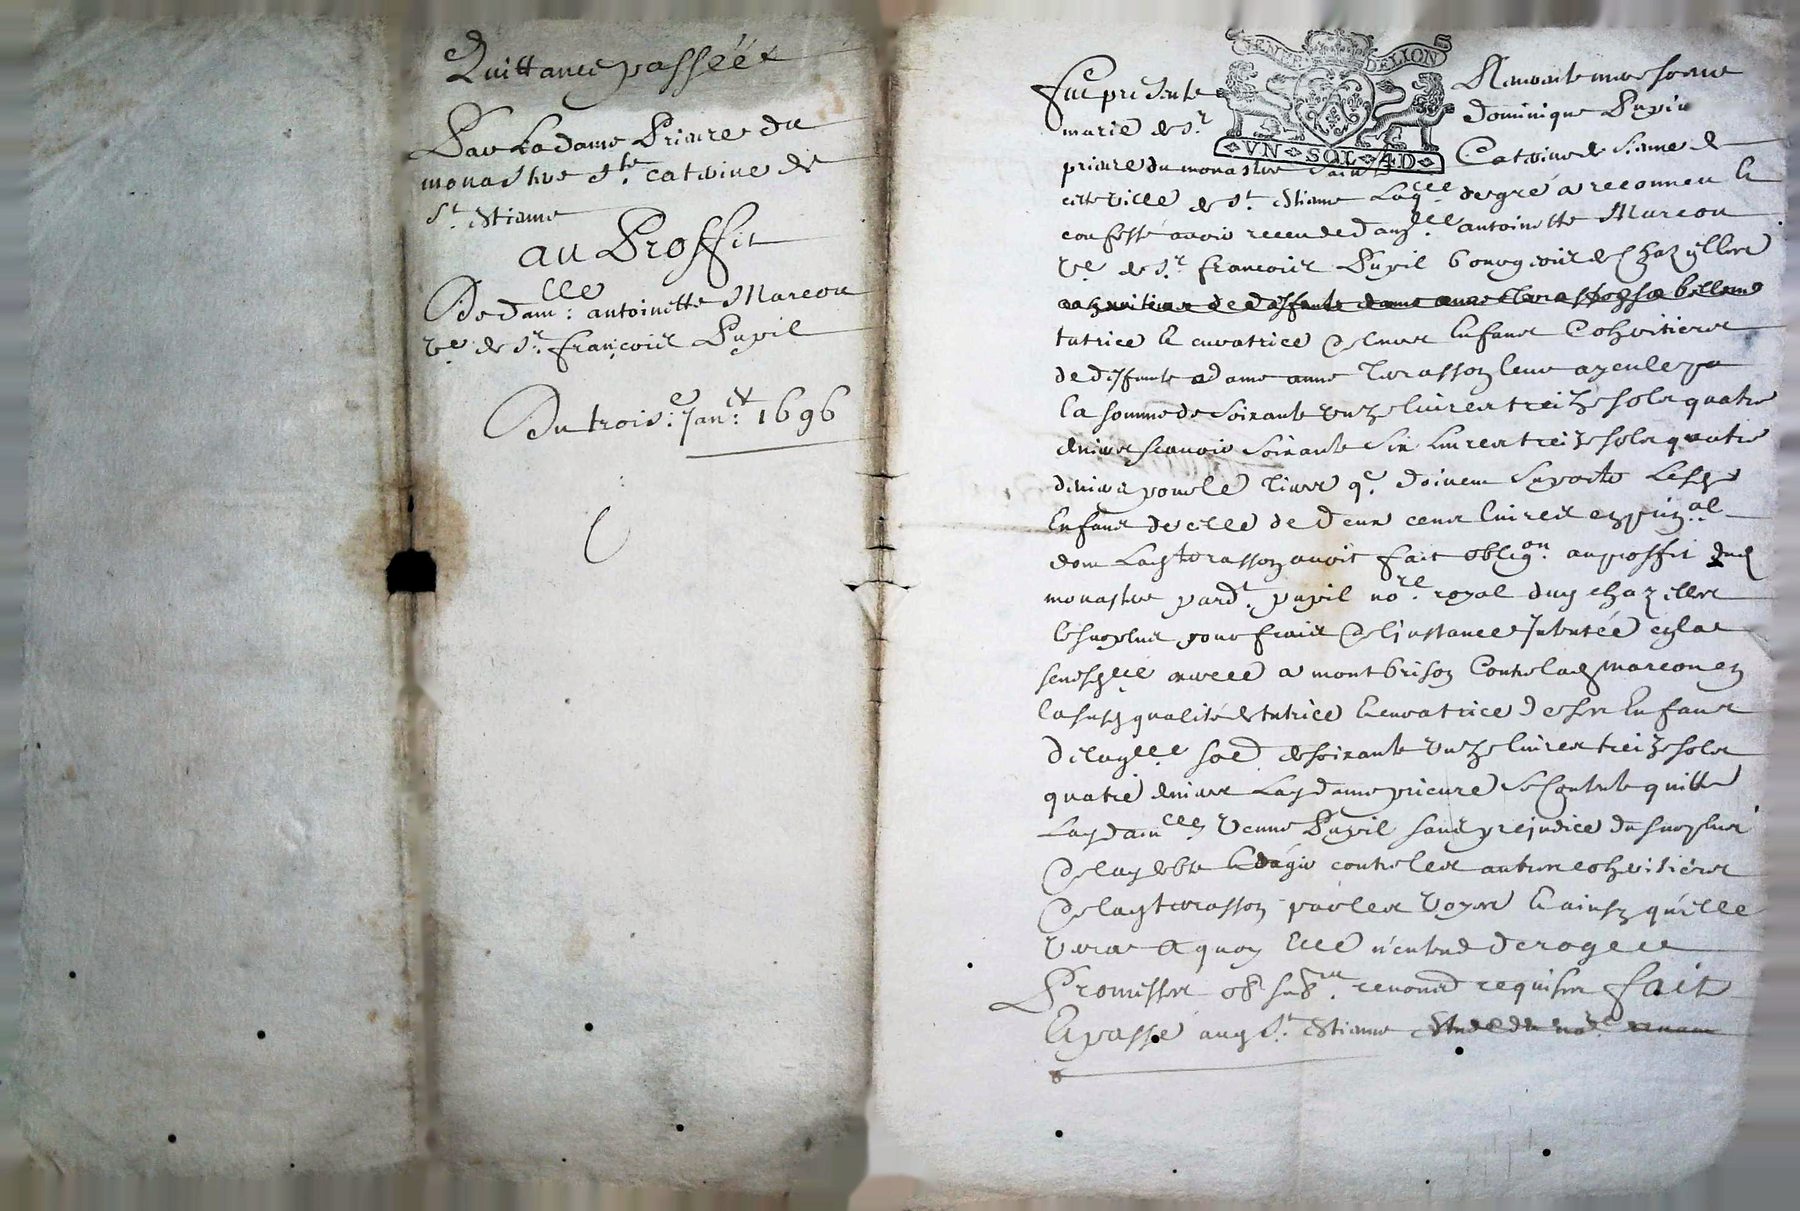 Quittance passéé
Par La dame Prieure du
monastere Ste. catherine de
St. Estienne
au Proffit
De damlle: antoinette Marcou
ve. de Sr. françois Pupil
Du troise: Janr: 1696
GENE DE LION
VN SOL 4D
fut presente Reverente mere soeur
marie de St. dominique Pupil
prieure du monastere Sainte Catherine de Sienne de
cette ville de St. Estienne Laqlle. de gré a reconneu &
confessé avoir receu de damlle. antoinette Marcou
ve. de Sr. françois Pupil bourgeois de Chazelles
tutrice & curatrice de leurs Enfans Cohéritiers
de deffunte dame anne Terrasson leur ayeule
la somme de Soixante unze livres treize sols quatre
deniers scavoir Soixante Six Livres treize sols quatre
deniers pour le tiers q. doivent Suporter Lesd.
Enfans de celle de Deux cens livres en prinal.
dont Lad. terrasson avoit fait obligon. au proffit dud.
monastere pardt. pupil nore. royal dud. chazelles
le surplus pour frais de l'instance Intentée en la
seneschllee a montbrison Contre lad. marcou en
la susd. qualité de tutrice & curatrice de ses Enfans
De laqlle. so. de soixante unze livres treize sols
quatre deniers Lad. dame prieure Se contente quitte
Lad. damlle. Veuve Pupil sans prejudice du surplus
de lad. debte & d'agir contre les autres cohéritiers
de lad. terrasson par les voyes & ainsy qu'elle
verra a quoy Elle n'entend deroger
Promesses ob. renond. requises fait
& passé aud. St. Estienne